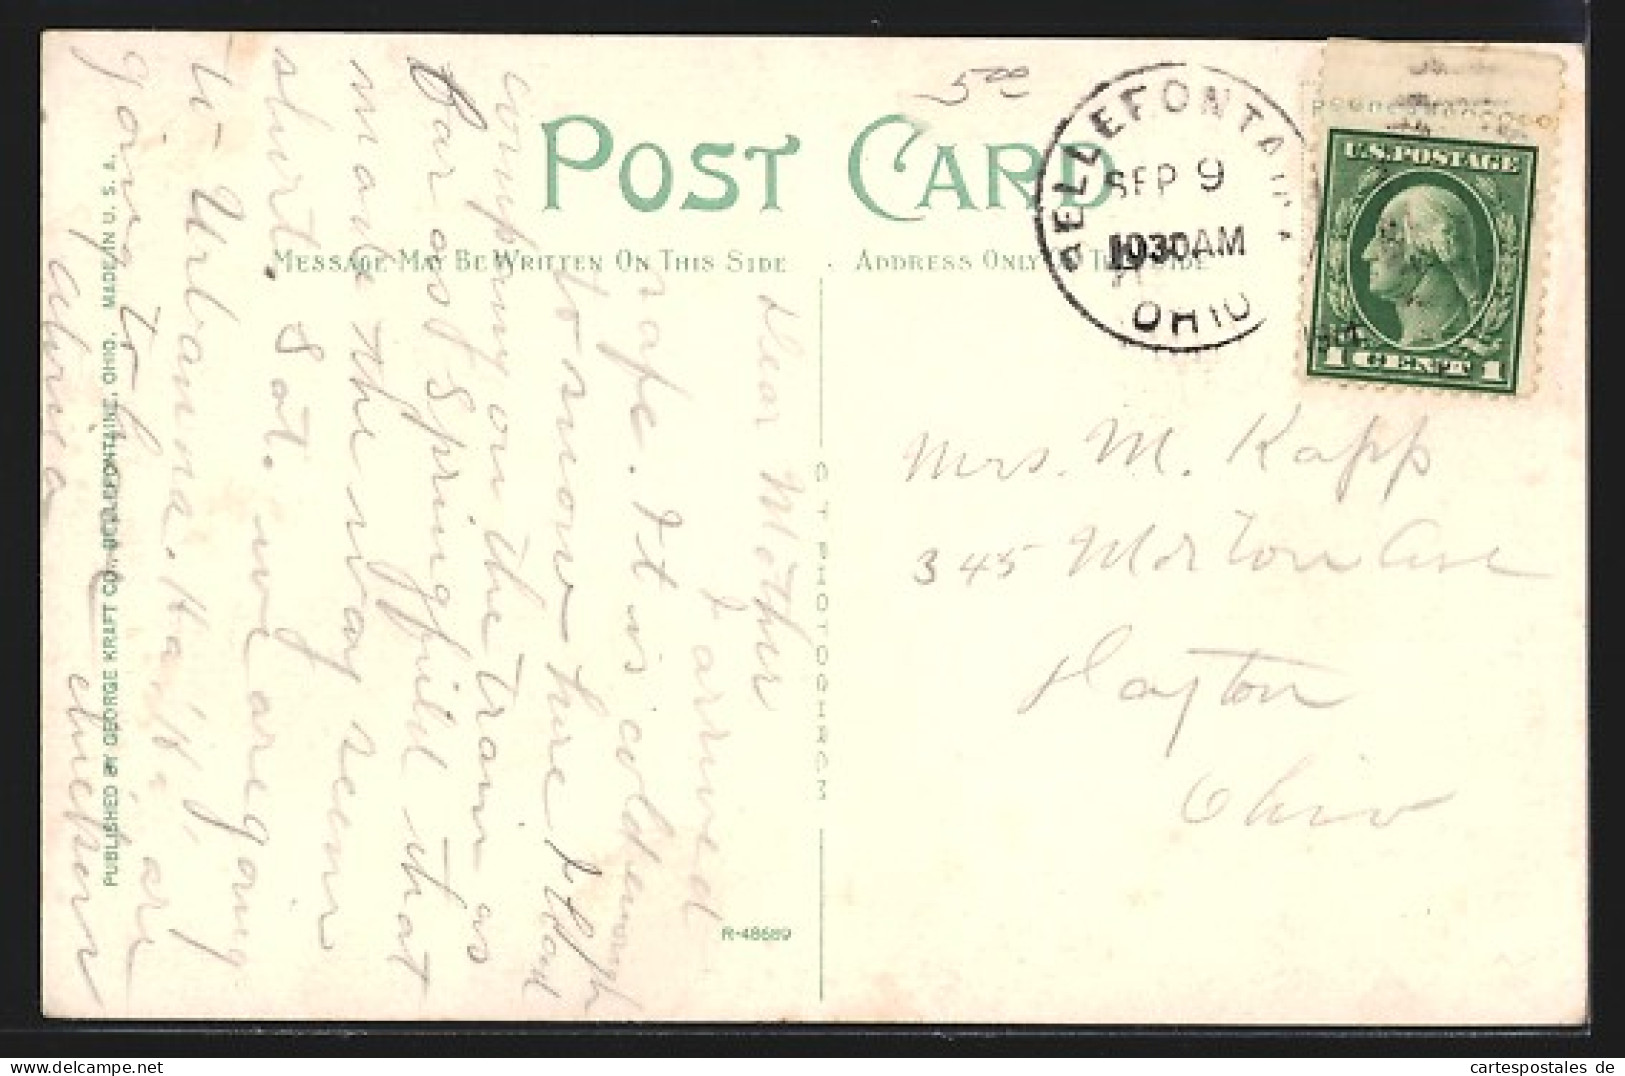 5.00
POST CARD
MESSAGE MAY BE WRITTEN ON THIS SIDE
ADDRESS ONLY THIS SIDE
BELLEFONTAINE
SEP 9
1030AM
OHIO
U.S. POSTAGE
1 CENT 1
Mrs. M. Kapp
345 Morton Ave
Dayton
Ohio
Dear Mother
I arrived
safe. It is cold enough
to snow here I had
company on the train as
far as Springfield that
made the way seem
short. we are going
to Urbana.
going to
C.T. PHOTOCHROM
R-48689
PUBLISHED BY GEORGE KRAFT CO., BELLEFONTAINE, OHIO. MADE IN U. S. A.
cartespostales de